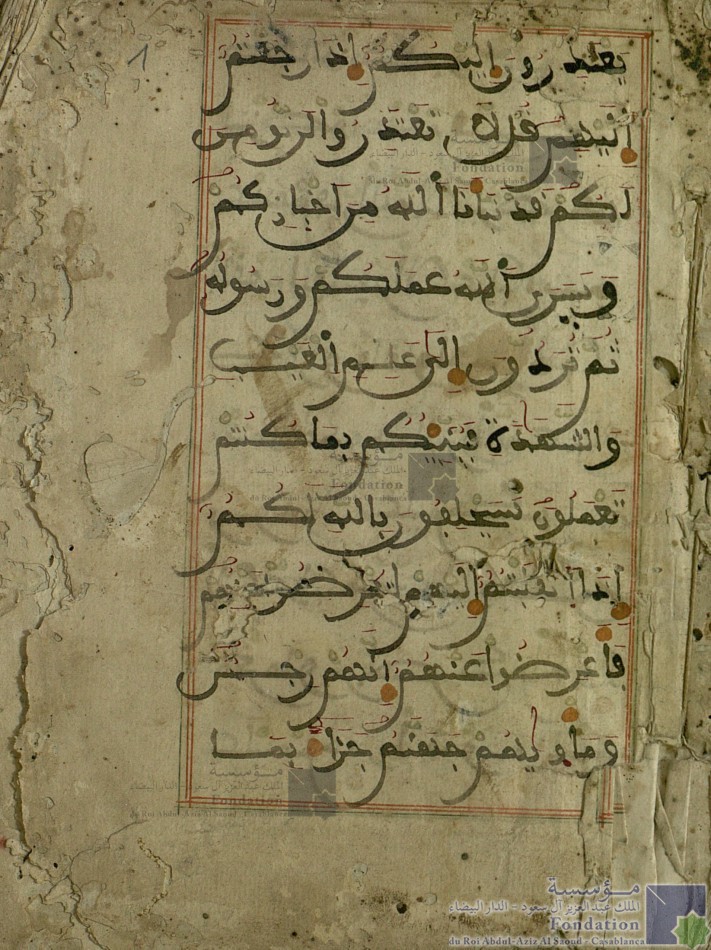 يعتذرون إليكم إذا رجعتم
إليهم قل لا تعتذروا لن نومن
لكم قد نبأنا ألله من اخباركم
وسيرى ألله عملكم ورسوله
ثم تردون إلى علم ألغيب
والشهدة فينبئكم بما كنتم
تعملون سيحلفون بالله لكم
إذا أنقلبتم إليهم لتعرضوا عنهم
فأعرضوا عنهم إنهم رجس
ومأويهم جهنم جزاء بما
مؤسسة
الملك عبد العزيز آل سعود - الدار البيضاء
Fondation
du Roi Abdul-Aziz Al Saoud - Casablanca